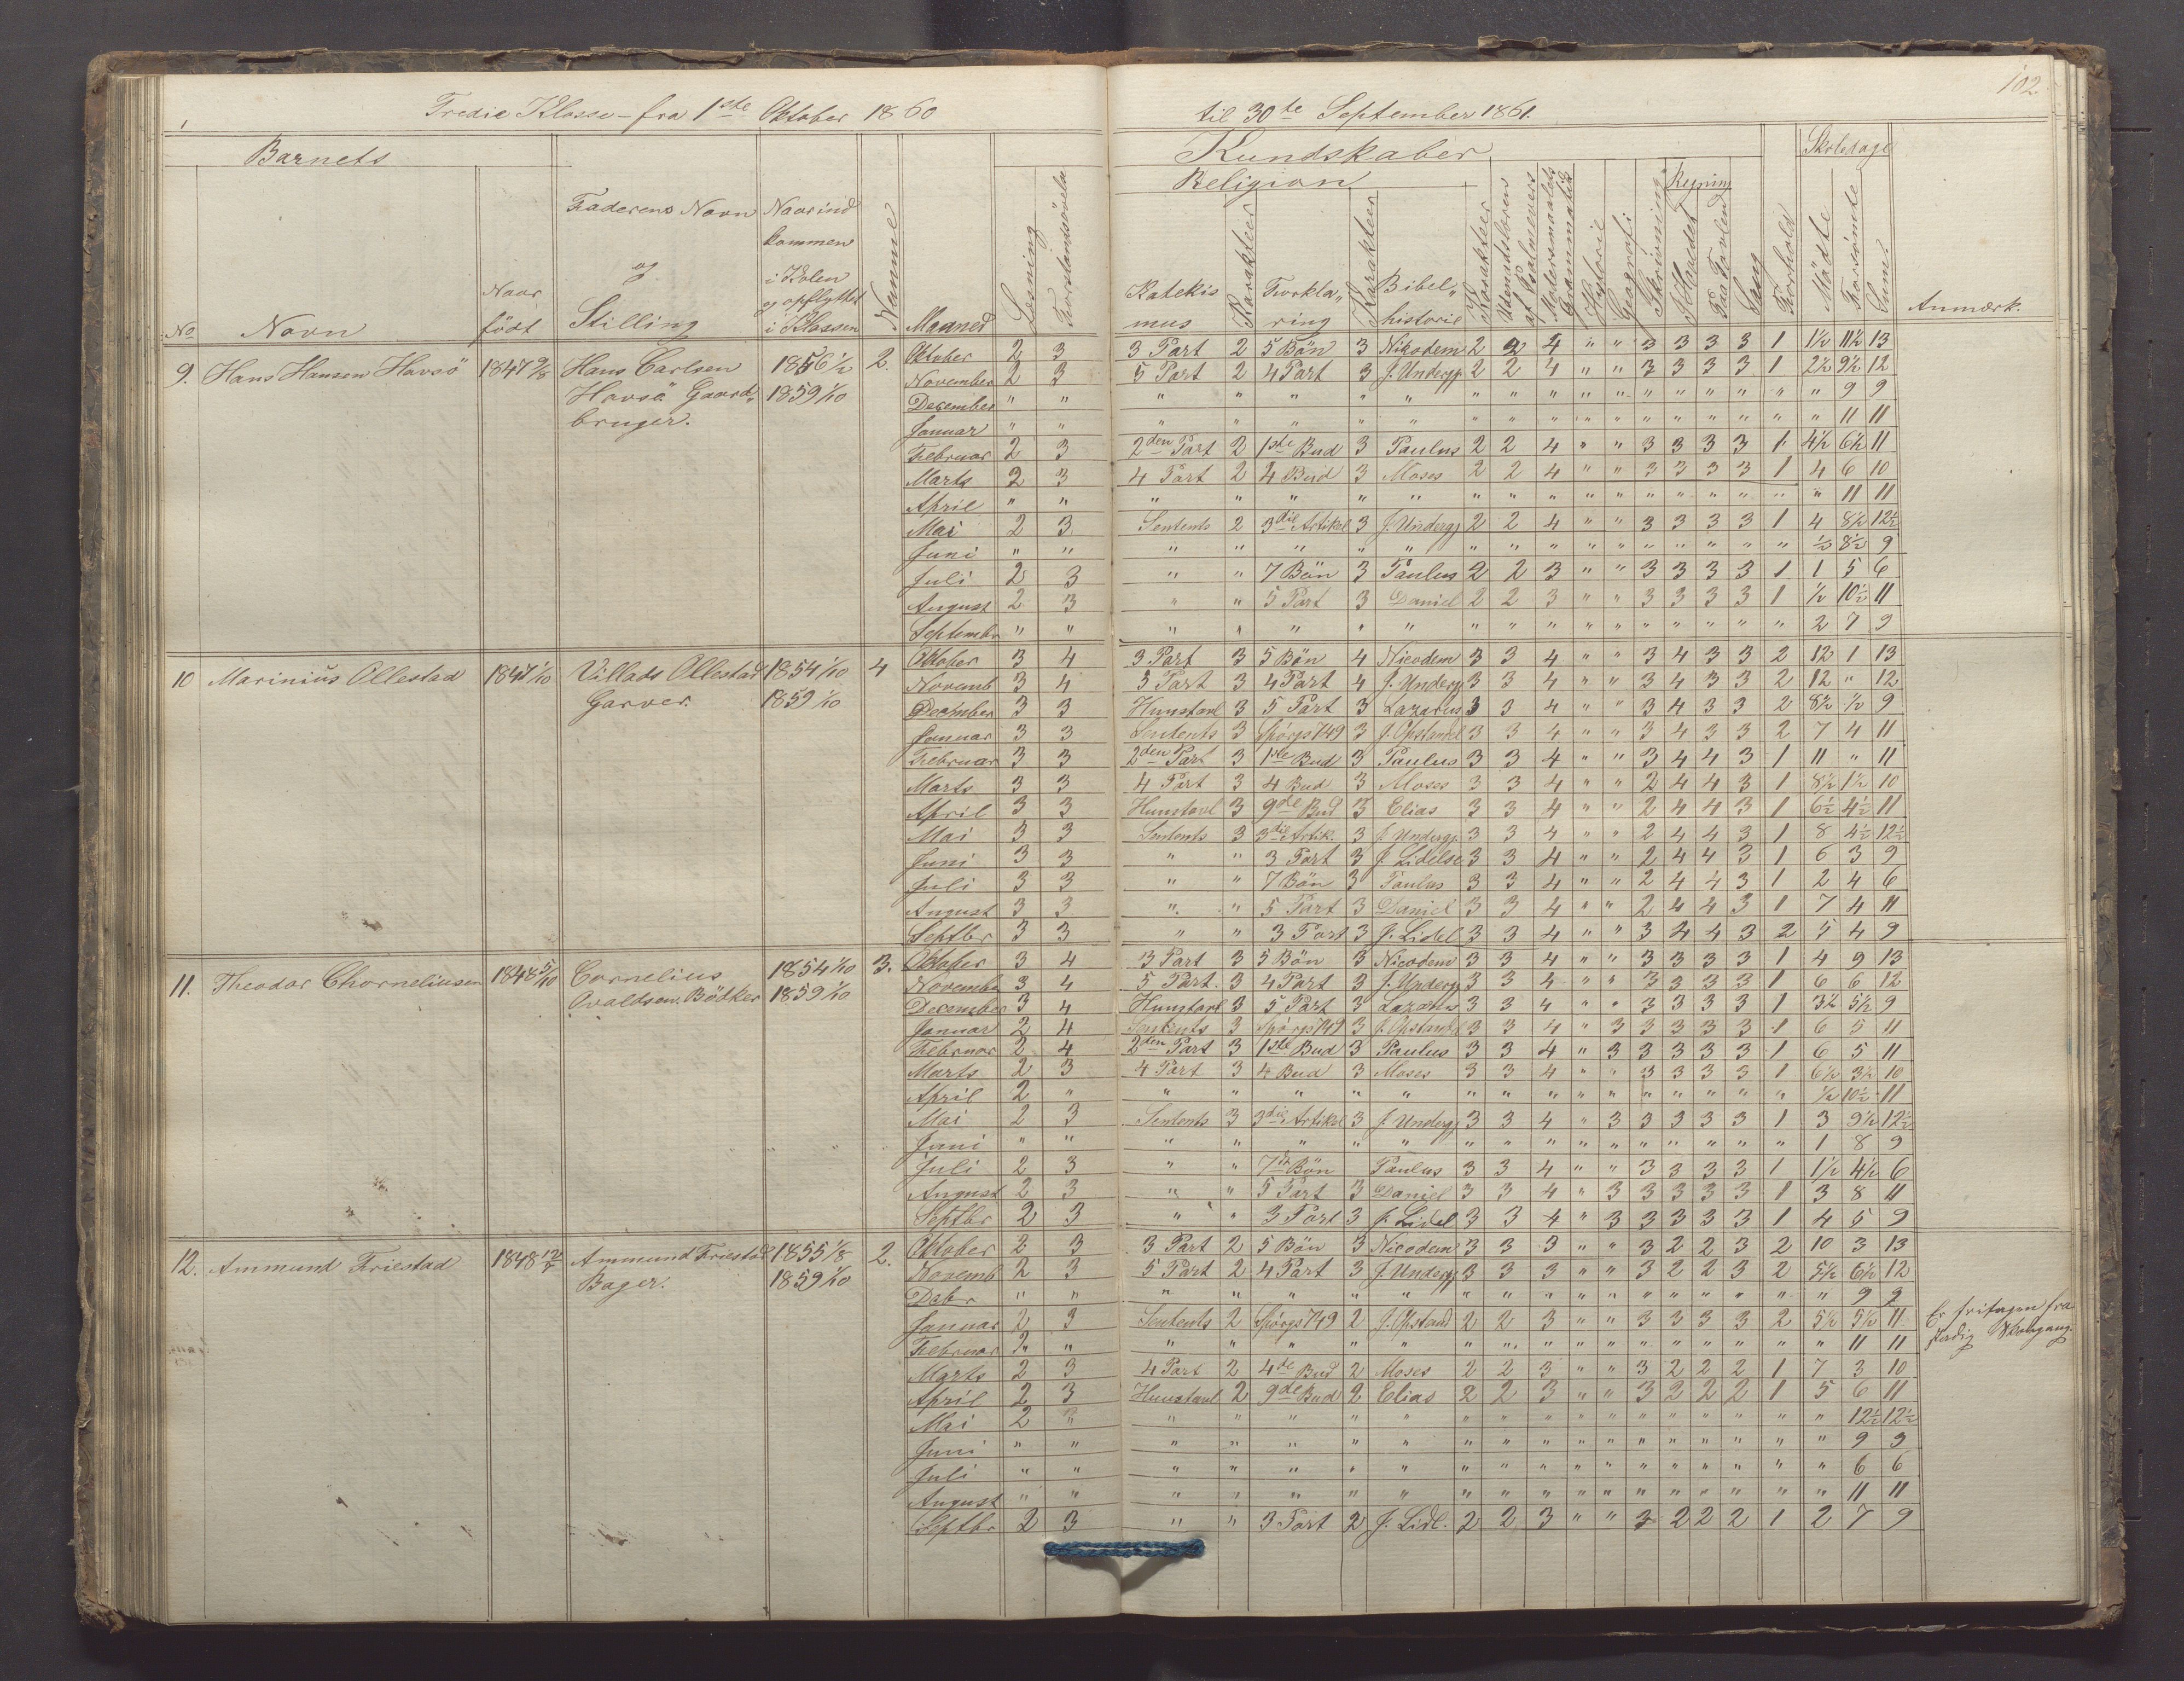 102.
Tredie Klasse - fra 1ste Oktober 1860 til 30te September 1861.
Barnets Kundskaber Skoledage
Religion Regning
No Navn Naar födt Faderens Navn og Stilling Naar ind kommen i Skolen og opflyttet i Klassen Nanme Maaned Læsning Forstandsövela Katekis mus Karakteer Forkla„ ring Karakteer Bibel„ historie Karakteer Udenadslæren af Psalmevers Modersmaalets Grammatik Historie Geografi Skrivning I Hovedet Paa Tavlen Sang Forhold Mödte Forsömte Sum? Anmærk.
9. Hans Hansen Havsö 1847 9/8 Hans Carlsen 1856 1/2 2. Oktober 2 3 3 Part 2 5 Bön 3 Nikodem 2 2 4 " " 3 3 3 3 1 1½ 11½ 13
Havsö Gaard„ 1859 1/10 November 2 3 5 Part 2 4 Part 3 J. Undergj 2 2 4 " " 3 3 3 3 1 2½ 9½ 12
bruger. December " " " " " " " " " " " " " " " " " " 9 9
Januar " " " " " " " " " " " " " " " " " " 11 11
Februar 2 3 2den Part 2 1ste Bud 3 Paulus 2 2 4 " " 3 3 3 3 1 4½ 6½ 11
Marts 2 3 4 Part 2 4 Bud 3 Moses 2 2 4 " " 3 3 3 3 1 4 6 10
April " " " " " " " " " " " " " " " " " " 11 11
Mai 2 3 Sentents 2 3die Artikel 3 J. Undergj 2 2 4 " " 3 3 3 3 1 4 8½ 12½
Juni " " " " " " " " " " " " " " " " " ½ 8½ 9
Juli 2 3 " " 7 Bön 3 Paulus 2 2 3 " " 3 3 3 3 1 1 5 6
August 2 3 " " 5 Part 3 Daniel 2 2 3 " " 3 3 3 3 1 ½ 10½ 11
Septembr " " " " " " " " " " " " " " " " " 2 7 9
10 Marinius Ollestad 1847 1/10 Villads Ollestad 1854 1/10 4 Oktober 3 4 3 Part 3 5 Bön 4 Nicodem 3 3 4 " " 3 4 3 3 2 12 1 13
Garver. 1859 1/10 Novemb 3 4 5 Part 3 4 Part 4 J. Undergj 3 3 4 " " 3 4 3 3 2 12 " 12
December 3 3 Hunstavl 3 5 Part 3 Lazarus 3 3 4 " " 3 4 3 3 2 8½ ½ 9
Januar 3 3 Sentents 3 Spörgs 749 3 J. Opstandel 3 3 4 " " 3 4 3 3 2 7 4 11
Februar 3 3 2den Part 3 1ste Bud 3 Paulus 3 3 4 " " 3 4 4 3 1 11 " 11
Marts 3 3 4 Part 3 4 Bud 3 Moses 3 3 4 " " 2 4 4 3 1 8½ 1½ 10
April 3 3 Hunstavl 3 9de Bud 3 Elias 3 3 4 " " 2 4 4 3 1 6½ 4½ 11
Mai 3 3 Sentents 3 3die Artik. 3 J. Undergj 3 3 4 " " 2 4 4 3 1 8 4½ 12½
Juni 3 3 " " 3 Part 3 J. Lidelse 3 3 4 " " 2 4 4 3 1 6 3 9
Juli 3 3 " " 7 Bön 3 Paulus 3 3 4 " " 2 4 4 3 1 2 4 6
August 3 3 " " 5 Part 3 Daniel 3 3 4 " " 2 4 4 3 1 7 4 11
Septbr 3 3 " " 3 Part 3 J. Lidel 3 3 4 " " 3 4 4 3 2 5 4 9
11. Theodor Chorneliusen 1848 5/10 Cornelius 1854 1/10 3. Oktober 3 4 3 Part 3 5 Bön 3 Nicodem 3 3 4 " " 3 3 3 3 1 4 9 13
Ovaldsen. Bödker 1859 1/10 November 3 4 5 Part. 3 4 Part 3 J. Undergj 3 3 4 " " 3 3 3 3 1 6 6 12
December 3 4 Hunstavl 3 5 Part 3 Lazarus 3 3 4 " " 3 3 3 3 1 3½ 5½ 9
Januar 2 4 Sentents 3 Spörgs 749 3 J. Opstandel 3 3 4 " 3 3 3 3 3 1 6 5 11
Februar 2 4 2den Part 3 1ste Bud 3 Paulus 3 3 4 " 3 3 3 3 3 1 6 5 11
Marts 2 3 4 Part 3 4 Bud 3 Moses 3 3 4 " " 3 3 3 3 1 6½ 3½ 10
April 2 " " " " " " " " " " " " " " " " ½ 10½ 11
Mai 2 3 Sentents 3 3die Artikel 3 J. Undergj 3 3 4 " 3 3 3 3 3 1 3 9½ 12½
Juni " " " " " " " " " " " " " " " " " 1 8 9
Juli 2 3 " " 7de Bön Paulus 3 3 4 " " 3 3 3 3 1 1½ 4½ 6
August 2 3 " " 5 Part 3 Daniel 3 3 4 " 3 3 3 3 3 1 3 8 11
Septbr 2 3 " " 3 Part 3 J. Lidel 3 3 4 " 3 3 3 3 3 1 4 5 9
12. Ammund Friestad 1848 12/2 Ammund Friestad 1855 1/8 2. Oktober 2 3 3 Part 2 5 Bön 3 Nicodem 3 3 3 " " 3 2 2 3 2 10 3 13
Bager. 1859 1/10 Novemb 2 3 5 Part 2 4 Part 3 J. Undergj 3 3 3 " " 3 2 2 3 2 5½ 6½ 12
Debr " " " " " " " " " " " " " " " " " " 9 9
Januar 2 3 Sentents 2 Spörgs 749 2 J. Opstand 2 2 3 " " 3 3 3 3 2 5½ 5½ 11 Er fritagen fra
Februar 2 " " " " " " " " " " " " " " " " " 11 11 stadig Skolegang.
Marts 2 3 4 Part 2 4de Bud 2 Moses 2 2 3 " " 3 2 2 2 1 7 3 10
April 2 3 Hunstavl 2 9de Bud 2 Elias 2 2 3 " " 3 2 2 2 1 5 6 11
Mai 2 " " " " " " " " " " " " " " " " " 12½ 12½
Juni " " " " " " " " " " " " " " " " " " 9 9
Juli " " " " " " " " " " " " " " " " " " 6 6
August " " " " " " " " " " " " " " " " " " 11 11
Septbr 2 3 " " 3 Part 2 J. Lidl. 2 2 3 " " 3 2 2 2 1 2 7 9